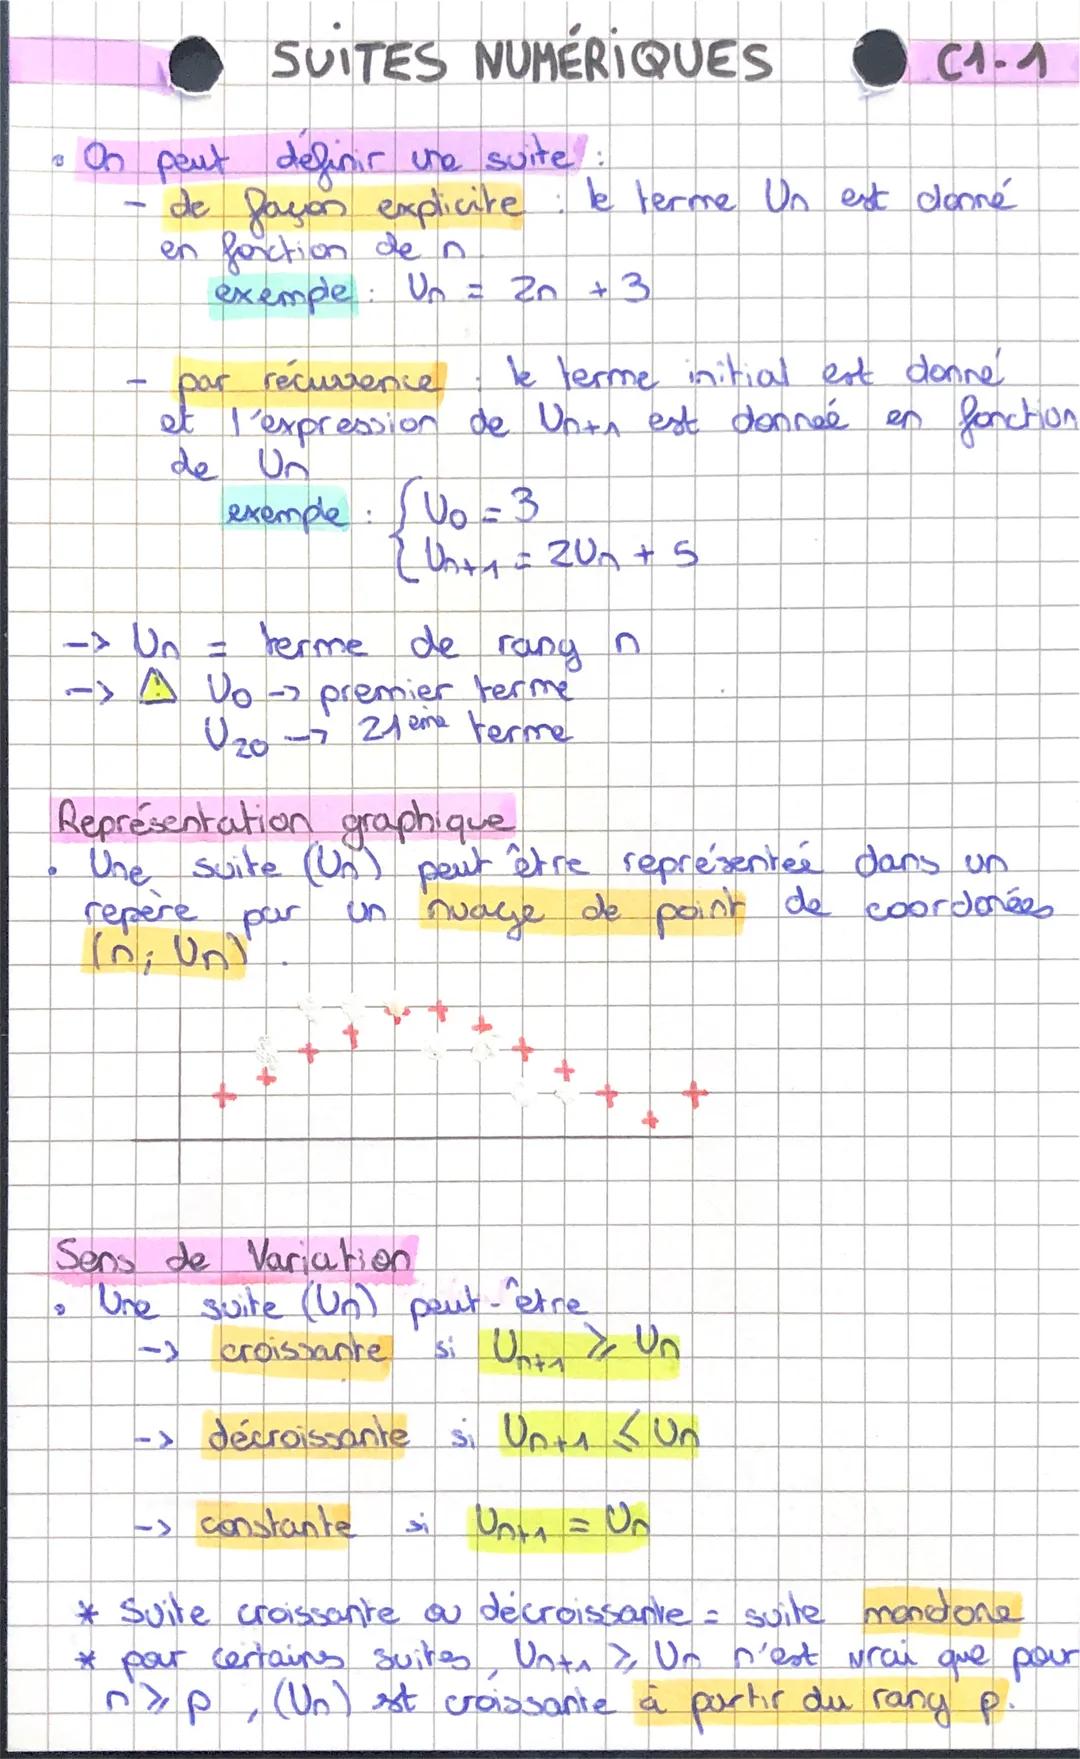 SUITES NUMÉRIQUES C1-1
• On peut définir une suite :
- de façon explicite : le terme Un est donné
en fonction de n.
exemple : Un = 2n + 3
- par récurrence : le terme initial est donné
et l'expression de Un+1 est donnée en fonction
de Un
exemple : { U0 = 3
Un+1 = 2Un + 5
-> Un = terme de rang n
-> ⚠ U0 -> premier terme
U20 -> 21ème terme
Représentation graphique
• Une suite (Un) peut être représentée dans un
repère par un nuage de point de coordonées
(n; Un).
Sens de Variation
• Une suite (Un) peut-être
-> croissante si Un+1 ⩾ Un
-> décroissante si Un+1 ⩽ Un
-> constante si Un+1 = Un
* Suite croissante ou décroissante = suite monotone
* pour certains suites, Un+1 ⩾ Un n'est vrai que pour
n ⩾ p, (Un) est croissante à partir du rang p.